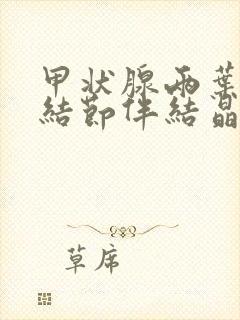 甲状腺两葉
結節伴結晶
草席